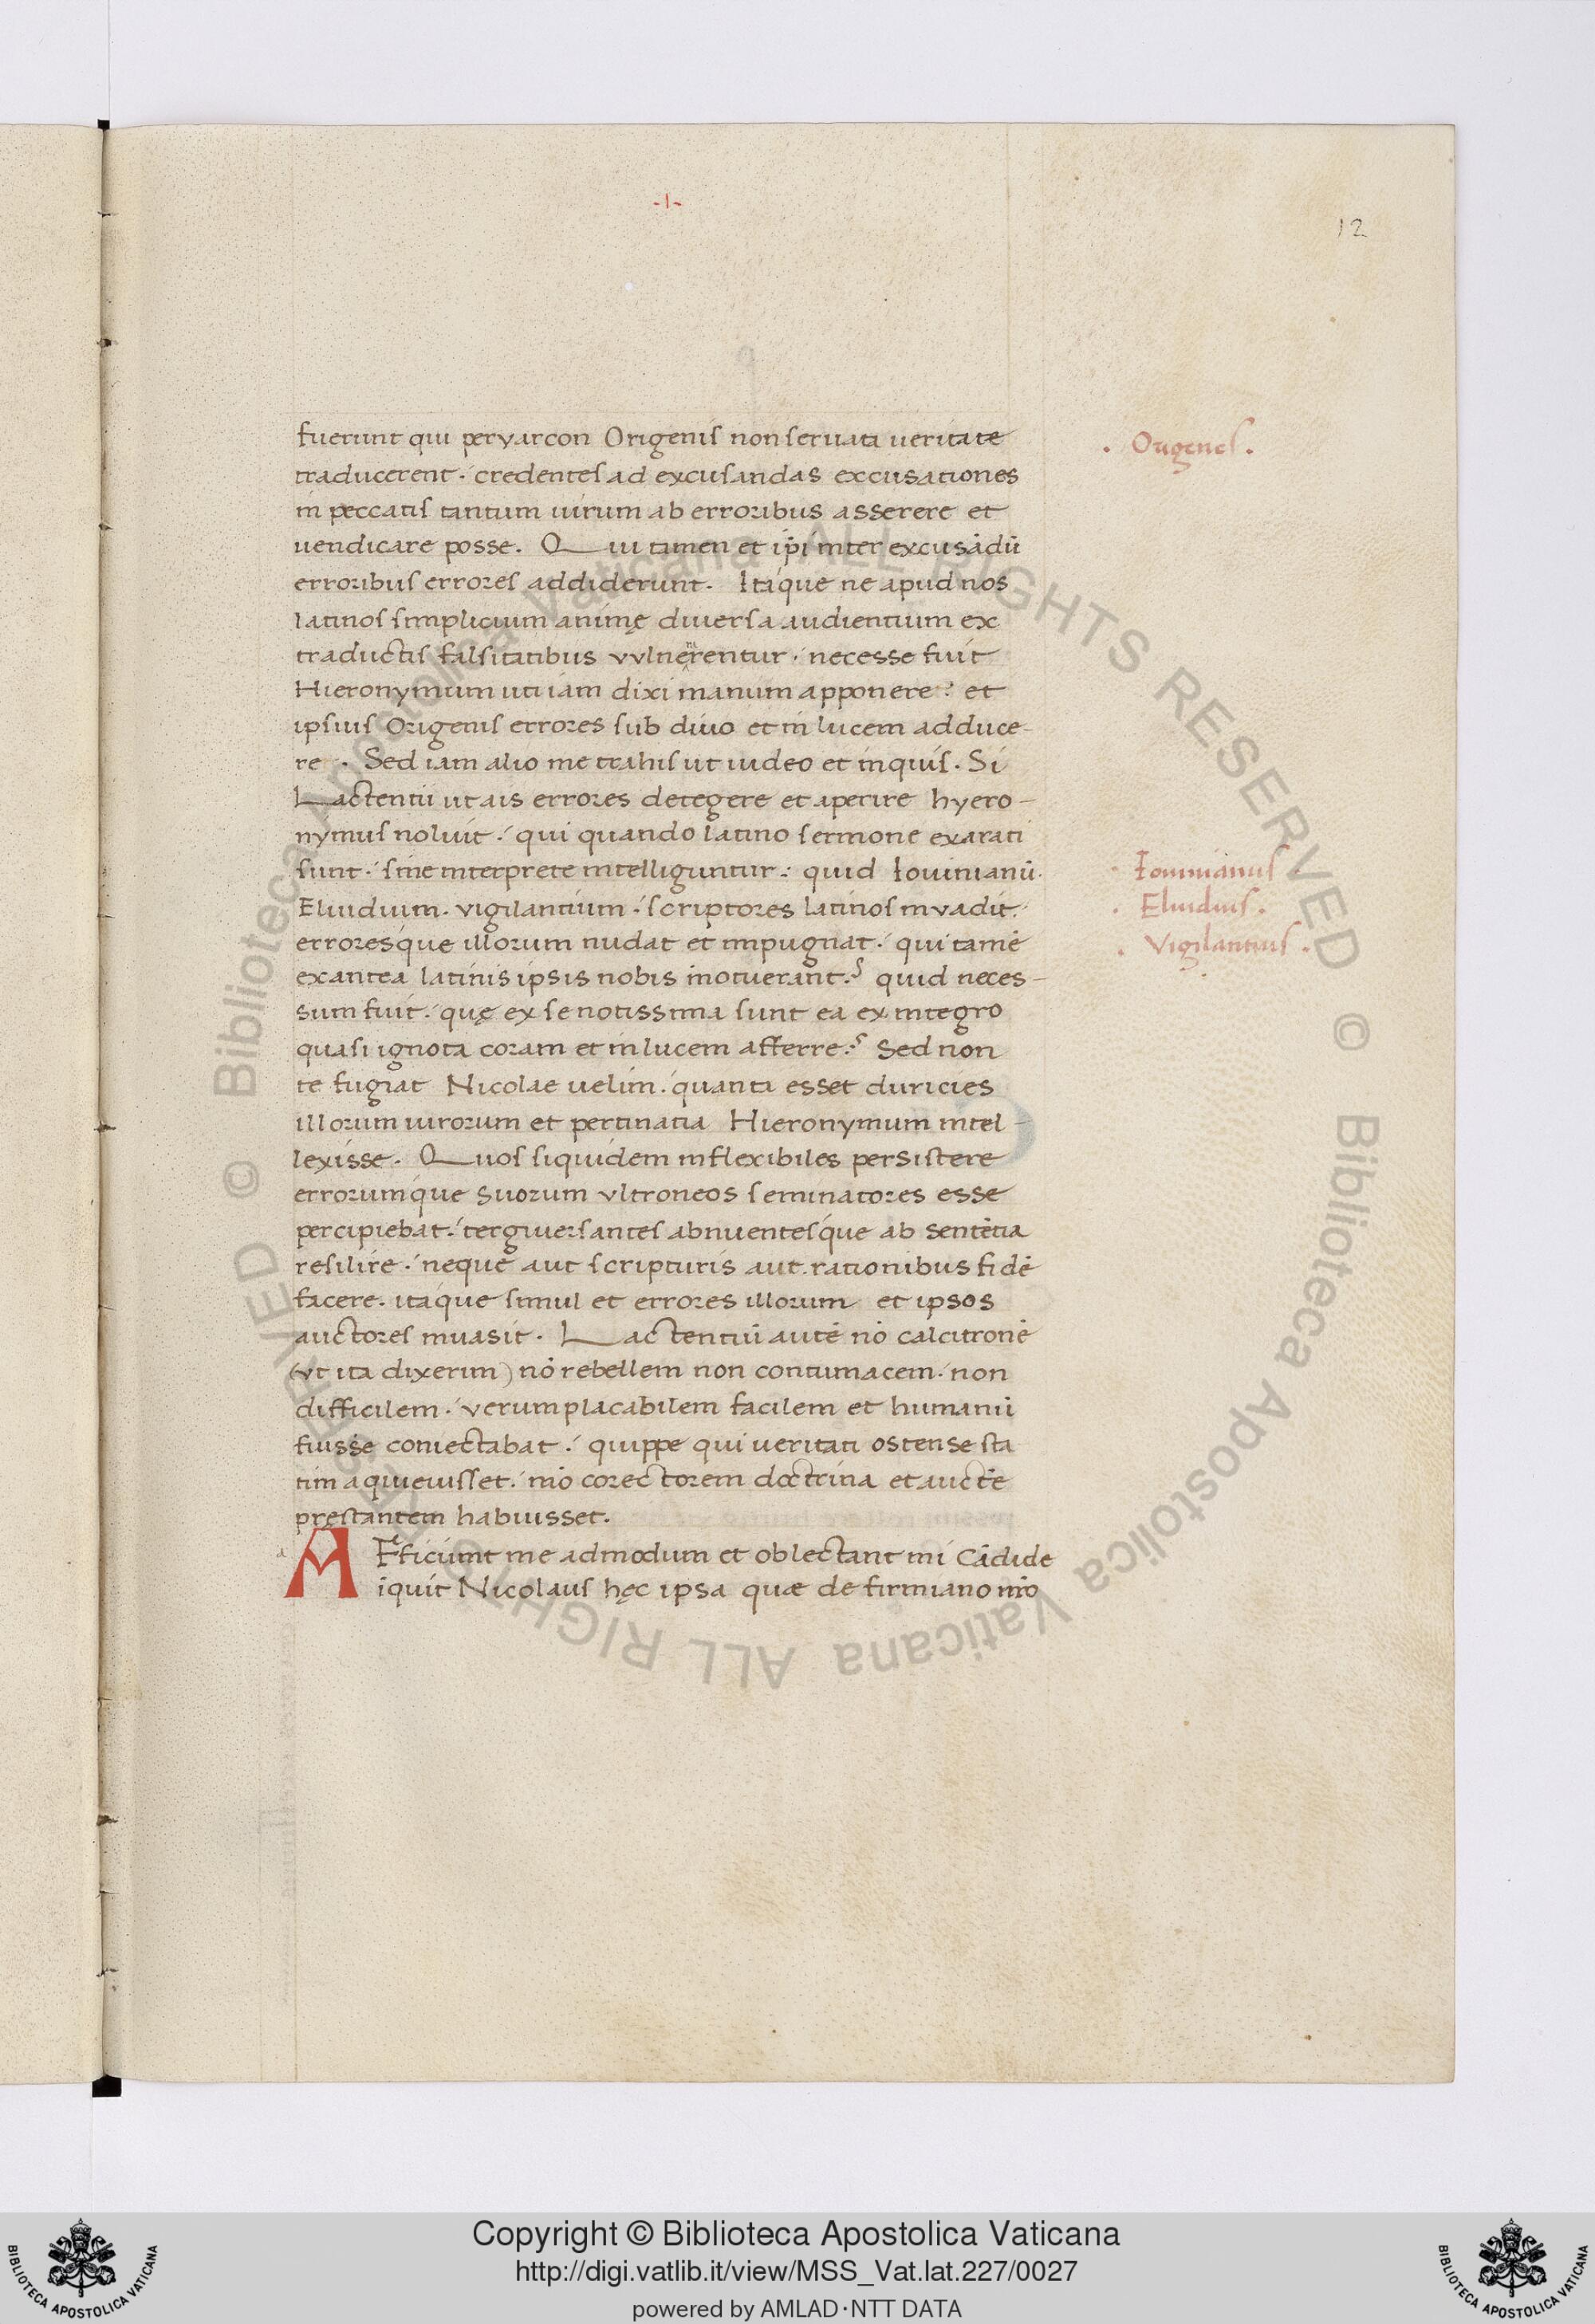 -I-
12
fuerunt qui peryarcon Origenis non seruata ueritate
· Origenes ·
traducerent · credentes ad excusandas excusationes
in peccatis tantum uirum ab erroribus asserere et
uendicare posse. Qui tamen et ip̄i inter excusādū
erroribus errores addiderunt. Itaque ne apud nos
latinos simplicium animę diuersa audientium ex
traductis falsitatibus vulnerentur · necesse fuit
Hieronymum uti iam dixi manum apponere : et
ipsius Origenis errores sub diuo et in lucem adduce-
re · Sed iam alio me trahis ut uideo et inquis · Si
Lactentii ut ais errores detegere et aperire hyero-
nymus noluit · qui quando latino sermone exarati
sunt · sine interprete intelliguntur : quid Iouinianū ·
· Iouinianus ·
Eluidium · vigilantium · scriptores latinos invadit ·
· Eluidius ·
erroresque illorum nudat et impugnat · qui tamē
· Vigilantius ·
exantea latinis ipsis nobis inotuerant ? quid neces-
sum fuit · quę ex se notissima sunt ea ex integro
quasi ignota coram et in lucem afferre ? Sed non
te fugiat Nicolae uelim · quanta esset duricies
illorum uirorum et pertinatia Hieronymum intel-
lexisse · Quos siquidem inflexibiles persistere
errorumque suorum vltroneos seminatores esse
percipiebat · tergiuersantes abnuentesque ab sentētia
resilire · neque aut scripturis aut rationibus fidē
facere · itaque simul et errores illorum et ipsos
auctores inuasit · Lactentiū autē nō calcitronē
(vt ita dixerim) nō rebellem non contumacem · non
difficilem · verum placabilem facilem et humanū
fuisse coniectabat · quippe qui ueritati ostense sta
tim aquieuisset · im̄o corectorem doctrina et aucte
pręstantem habuisset.
AFficiunt me admodum et oblectant mi Cādide
iquit Nicolaus hęc ipsa quae de firmiano nr̄o
Copyright © Biblioteca Apostolica Vaticana
http://digi.vatlib.it/view/MSS_Vat.lat.227/0027
powered by AMLAD·NTT DATA
BIBLIOTECA APOSTOLICA VATICANA
BIBLIOTECA APOSTOLICA VATICANA